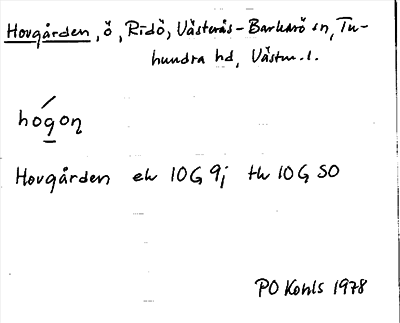 Hovgården, ö, Ridö, Västerås-Barkarö sn, Tu-
hundra hd, Västm. l.
hógoŋ
Hovgården ek 10G 9j tk 10G SO
PO Kohls 1978